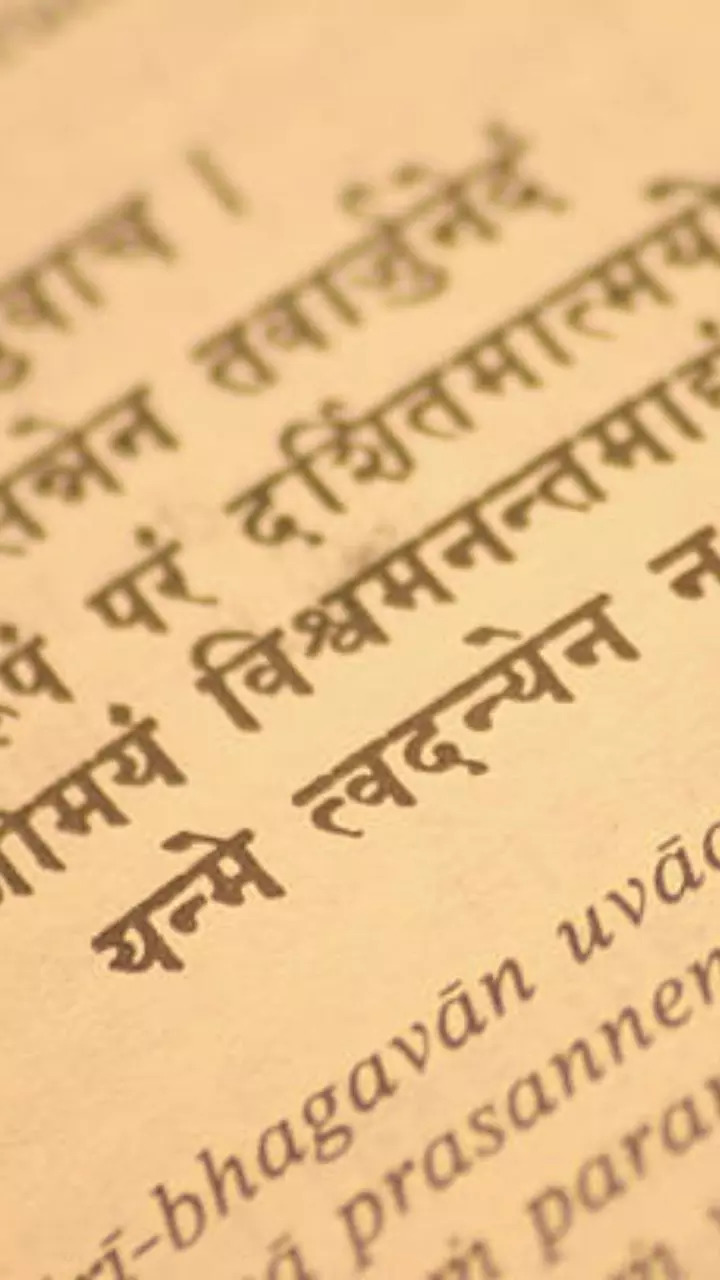 वाच ।
न्नेन तवार्जुनेदं
पं परं दर्शितमात्मयो
मयं विश्वमनन्तमाद्यं
यन्मे त्वदन्येन न
rī-bhagavān uvāc
ā prasannen
ṁ param